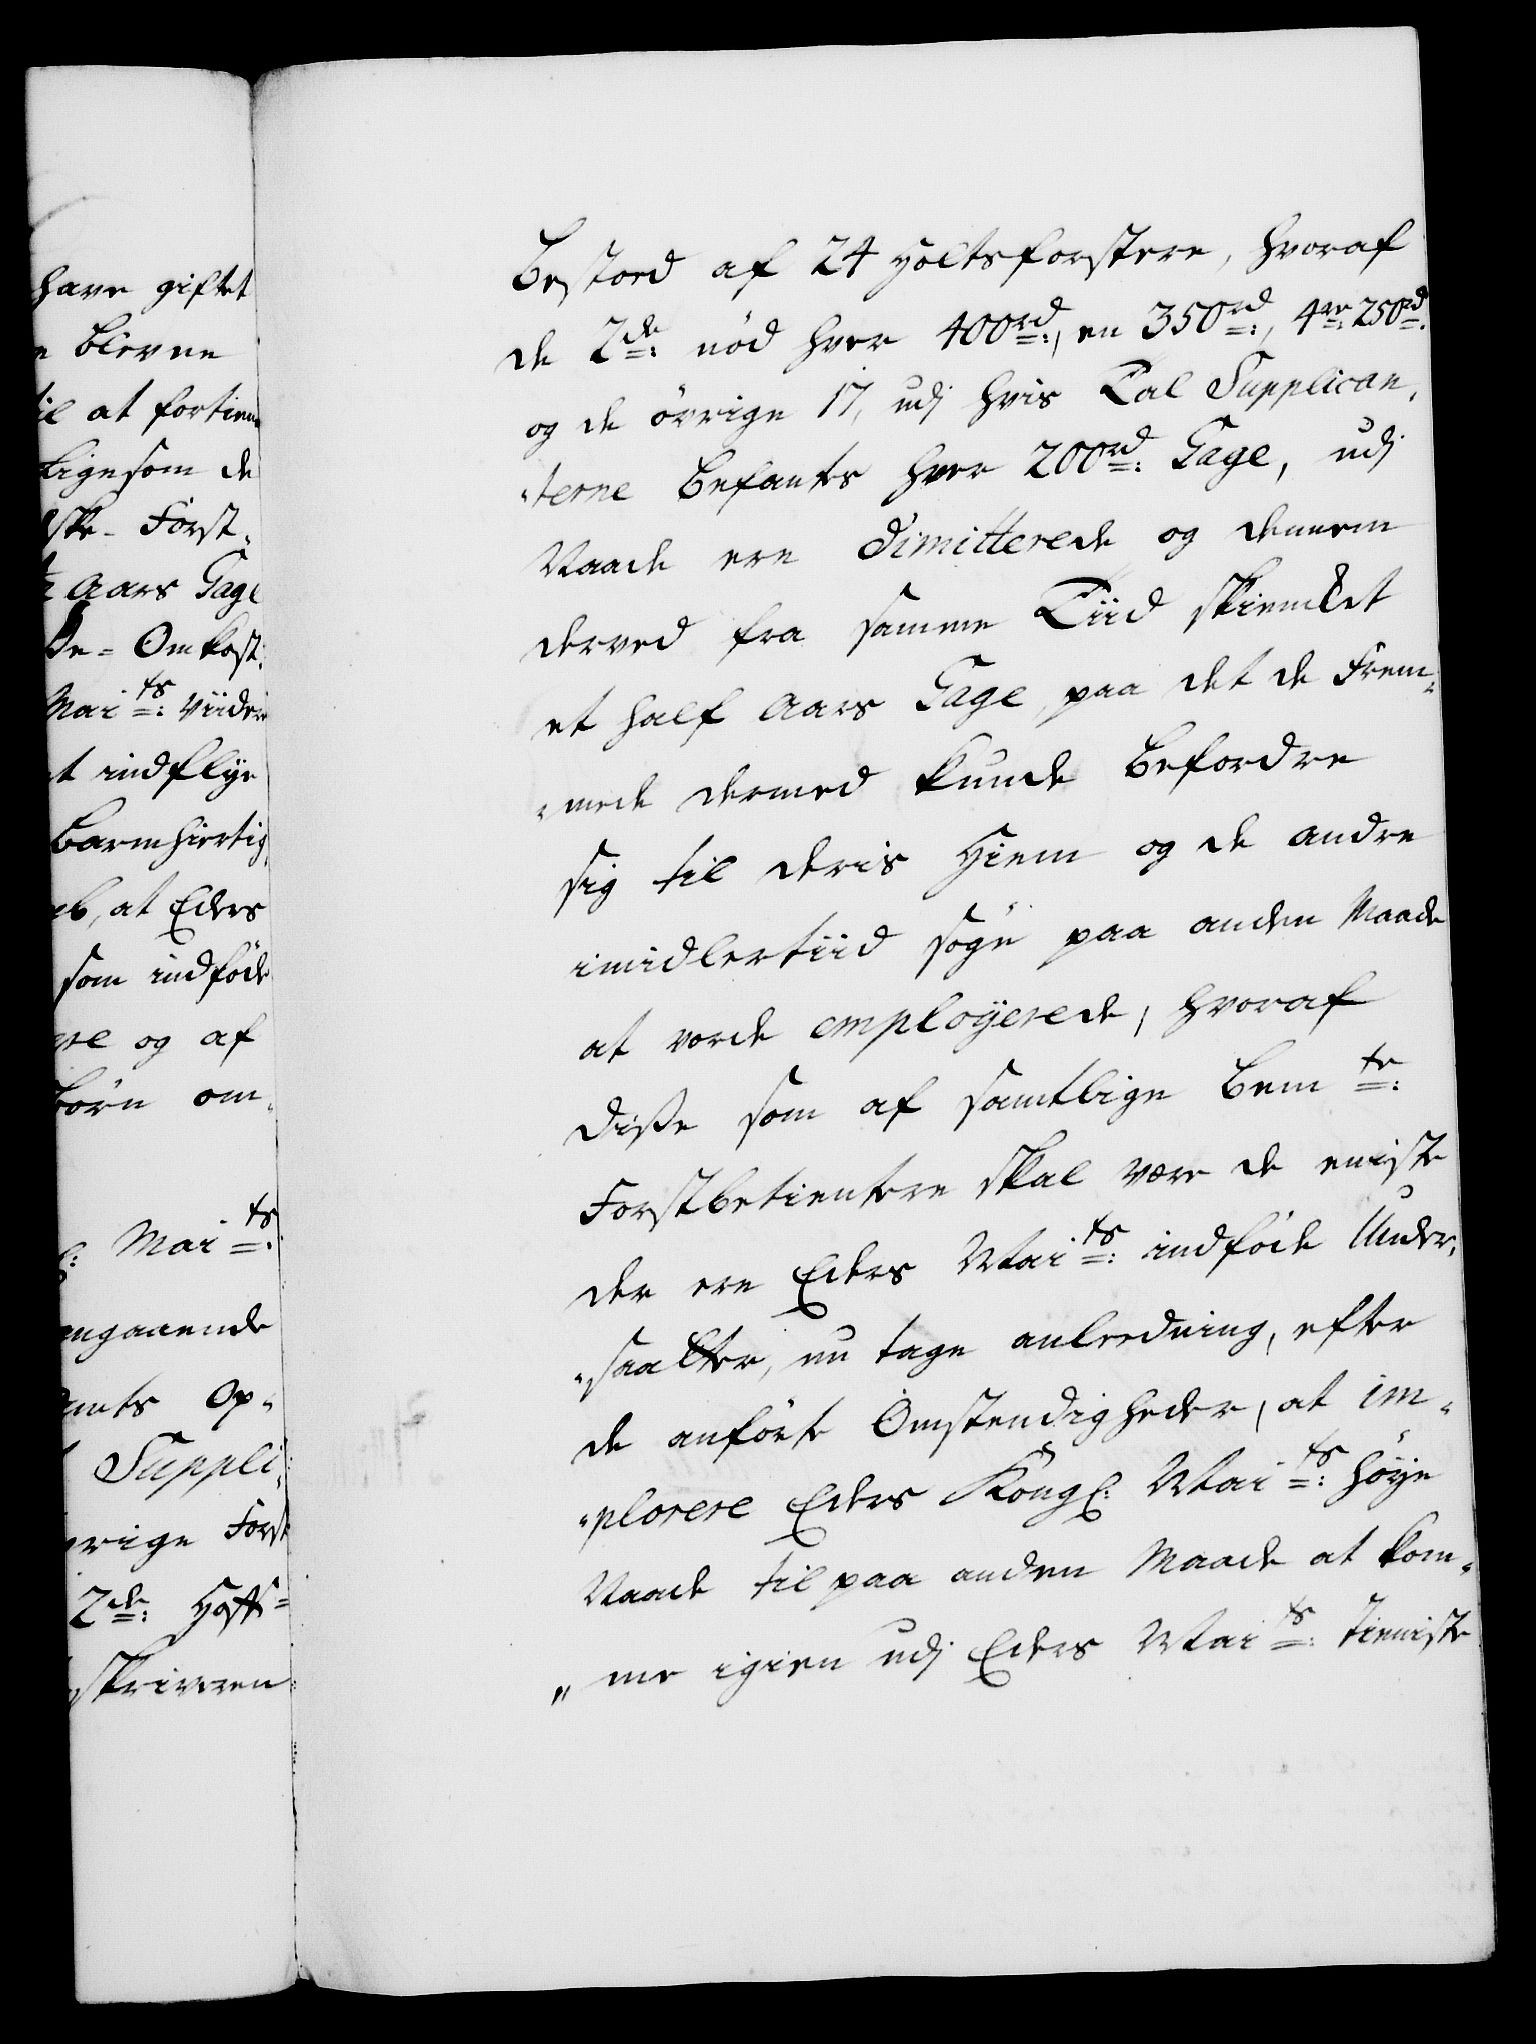 have giftet
blevne
til at fortiene
ligesom de
ske- Forst-
Aars Gage
De- Omkost:
Mai ts: Viidere
t indflye
barmhiertig
at Eders
som indföde
ere og af
börn om-
Mai ts:
angaaende
amts Op-
Suppli-
rige Forst
2de: Hoff=
skriveren
bestoed af 24 Holtsforstere, hvoraf
de 2de: nöd hver 400rd:, en 350rd:, 4re: 250rd:
og de övrige 17, udj hvis Tal Supplican-
-terne befantes hver 200rd: Gage, udj
Naade ere dimitterede og dennem
derved fra samme Tiid skienket
et half Aars Gage, paa det de Frem-
-mede dermed kunde befordre
sig til deris Hiem og de andre
imidlertiid söge paa anden Maade
at vorde employerede, hvoraf
disse som af samtlige bem te:
Forstbetientere skal være de eniste
der ere Eders Mai ts: indföde Under-
-saatter, nu tage anleedning, efter
de anförte Omstendigheder, at im-
-plorere Eders Kongl: Mai ts: höye
Naade til paa anden Maade at kom-
-me igien udj Eders Mai ts: Tieniste